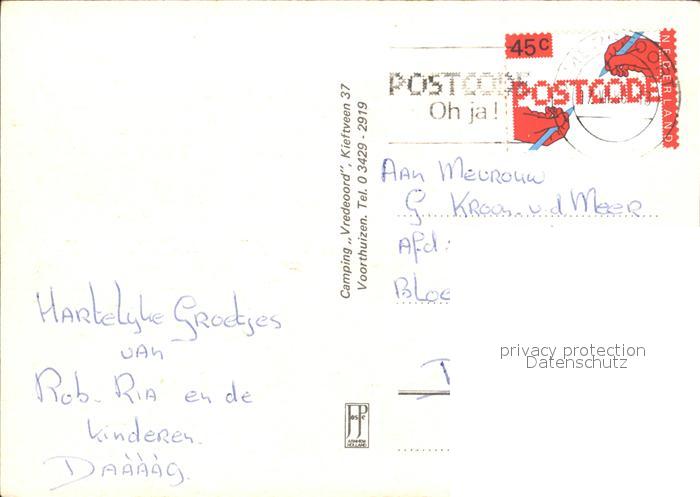 45c
NEDERLAND
POSTCODE
POSTCODE
Oh ja!
Camping „Vredeoord”, Kieftveen 37
Voorthuizen. Tel. 0 3429 - 2919
Aan Mevrouw
G Kroon. v.d Meer
Afd:
Bloe
privacy protection
Datenschutz
Hartelyke Groetjes
van
Rob. Ria en de
kinderen.
Daàààg.
ARNHEM
HOLLAND